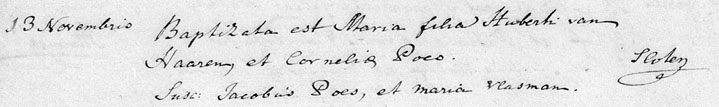 13 Novembris Baptizata est Maria filia Huberti van
Haaren, et Cornelia Poes. Sloten
Susc: Jacobus Poes, et maria Vlasman.